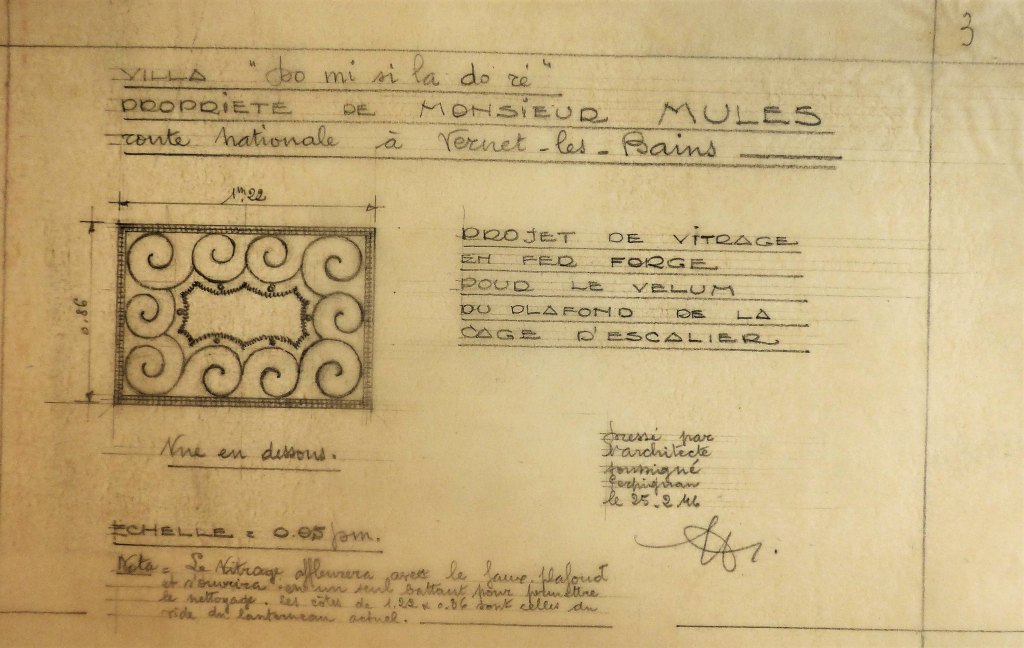 3
VILLA "Do mi si la do ré"
PROPRIETE DE MONSIEUR MULES
route nationale à Vernet-les-Bains
1m.22
0.86
PROJET DE VITRAGE
EN FER FORGE
POUR LE VELUM
DU PLAFOND DE LA
CAGE D'ESCALIER
Vue en dessous.
Dressé par
l'architecte
soussigné
Perpignan
le 25.2.46
ECHELLE = 0.05 pm.
Nota = Le Vitrage affleurera avec le faux plafond
et s'ouvrira en un seul battant pour permettre
le nettoyage. Les côtes de 1.22 x 0.86 sont celles du
vide du lanterneau actuel.